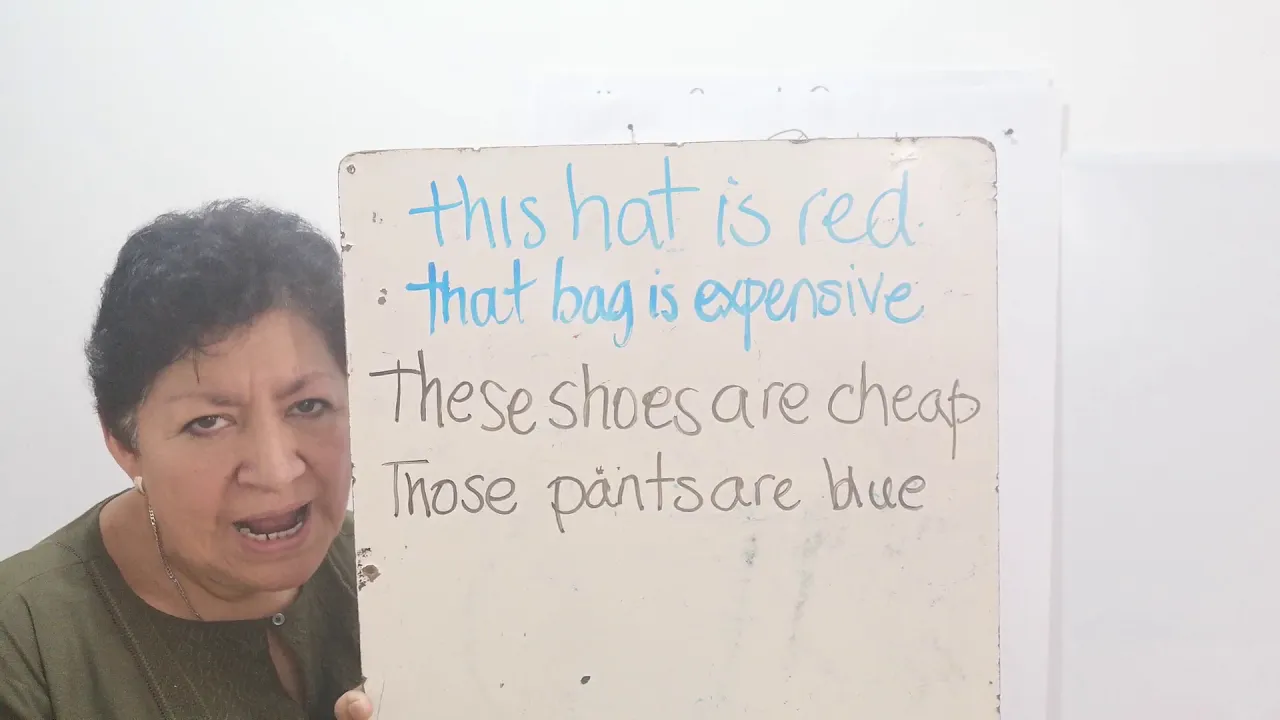 this hat is red
that bag is expensive
These shoes are cheap
Those pants are blue